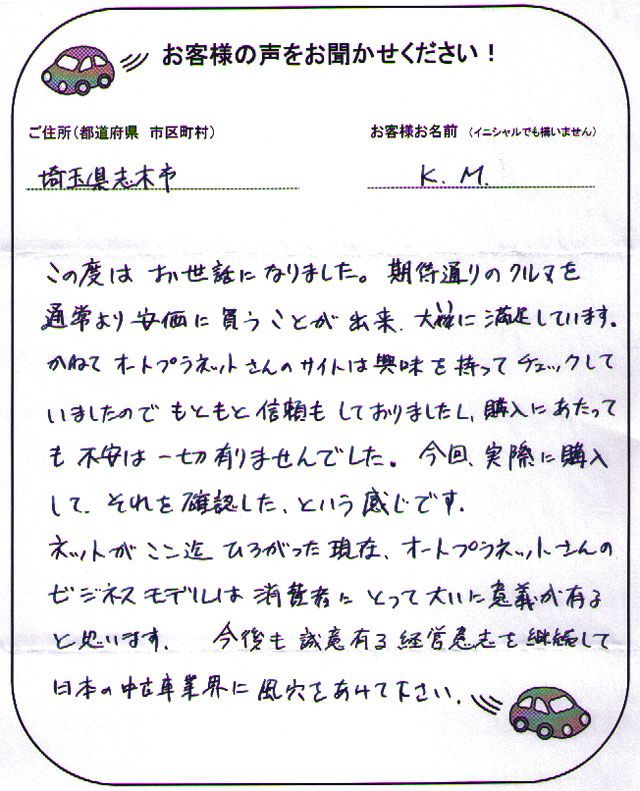 お客様の声をお聞かせください！
ご住所（都道府県　市区町村）
お客様お名前　（イニシャルでも構いません）
埼玉県志木市
K. M.
この度は お世話になりました。期待通りのクルマを
通常より安価に買うことが出来、大いに満足しています。
かねて オートプラネットさんのサイトは興味を持ってチェックして
いましたので もともと信頼も しておりましたし、購入にあたって
も 不安は 一切有りませんでした。 今回、実際に購入
して、それを確認した、という感じです。
ネットがここ迄 ひろがった現在、オートプラネットさんの
ビジネスモデルは 消費者にとって大いに意義が有る
と思います。 今後も 誠意有る 経営意志を継続して
日本の中古車業界に 風穴をあけて下さい。